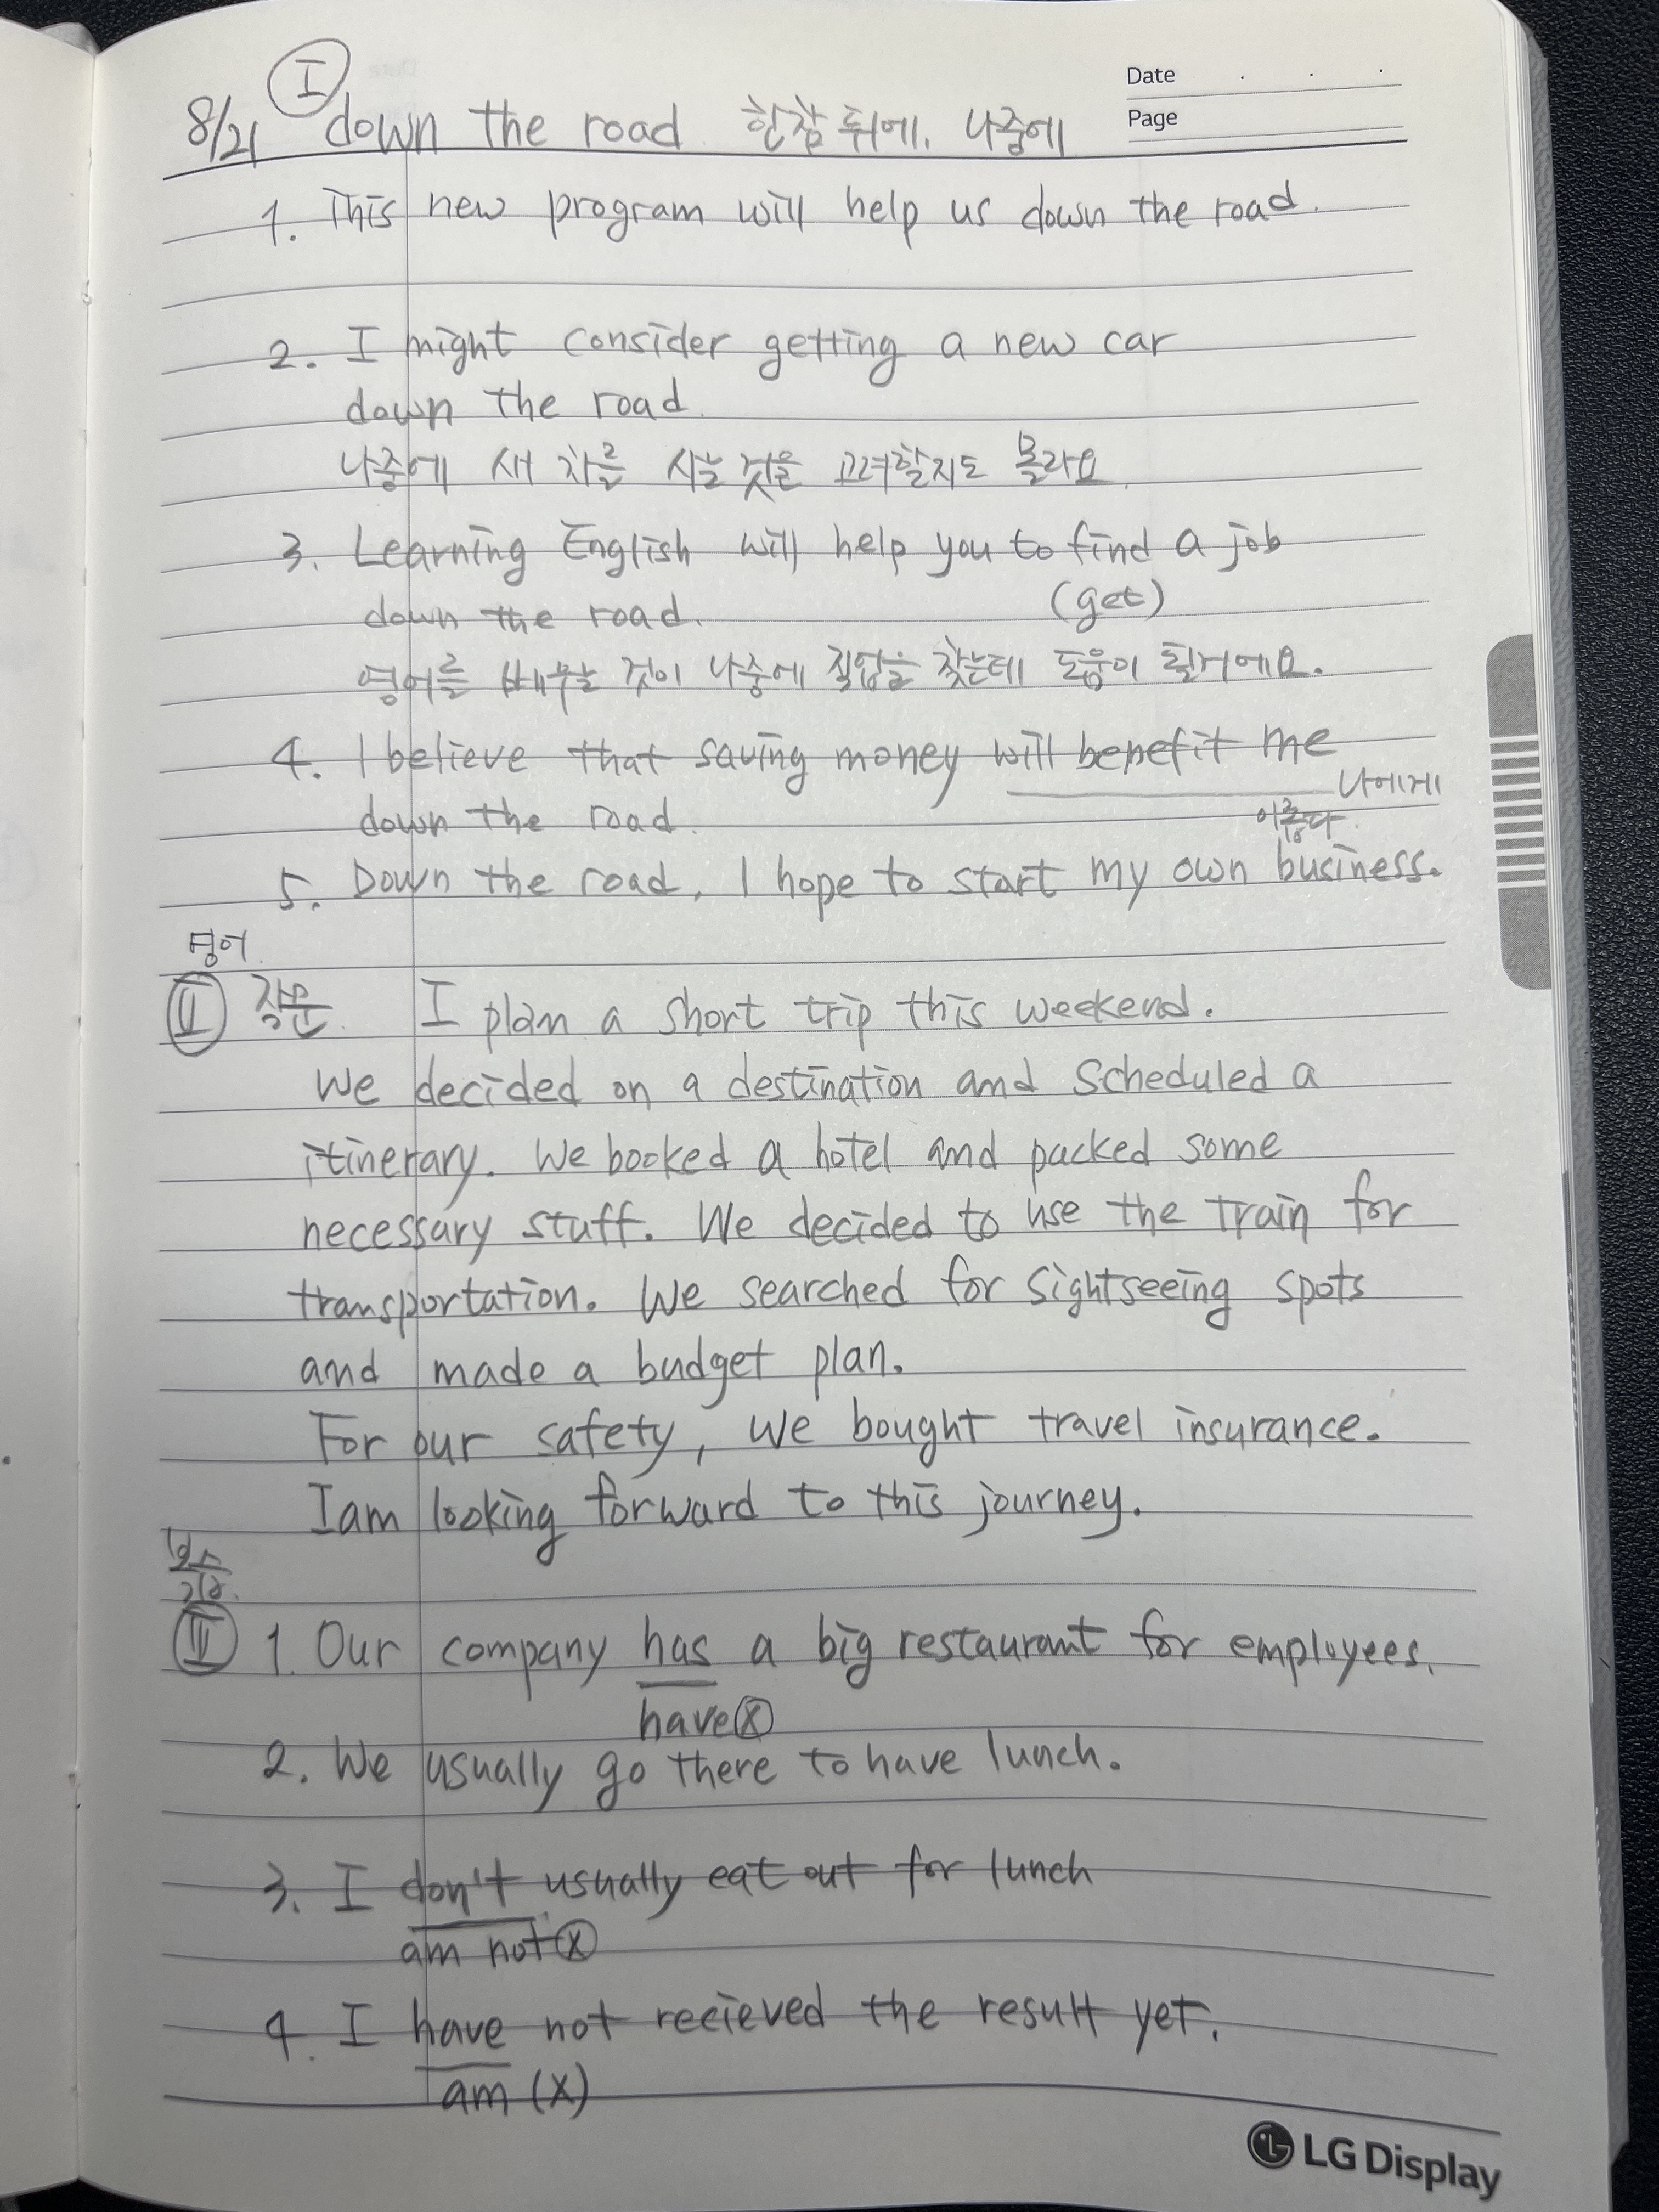 Date . . .
Page
I
8/21 down the road 한참 뒤에, 나중에
1. This new program will help us down the road.
2. I might consider getting a new car
down the road.
나중에 새 차를 사는 것을 고려할지도 몰라요.
3. Learning English will help you to find a job
(get)
down the road.
영어를 배우는 것이 나중에 직업을 찾는데 도움이 될거에요.
4. I believe that saving money will benefit me
나에게
down the road.
이롭다.
5. Down the road, I hope to start my own business.
영어
II 작문. I plan a short trip this weekend.
We decided on a destination and scheduled a
itinerary. We booked a hotel and packed some
necessary stuff. We decided to use the train for
transportation. We searched for sightseeing spots
and made a budget plan.
For our safety, we bought travel insurance.
I am looking forward to this journey.
1. Our company has a big restaurant for employees.
have ⓧ
2. We usually go there to have lunch.
3. I don't usually eat out for lunch
am not ⓧ
4. I have not recieved the result yet.
am (X)
LG Display